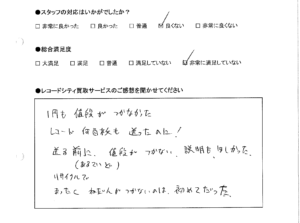 ●スタッフの対応はいかがでしたか？
□ 非常に良かった □ 良かった □ 普通 ☑ 良くない □ 非常に良くない
●総合満足度
□ 大満足 □ 満足 □ 普通 □ 満足していない ☑ 非常に満足していない
●レコードシティ買取サービスのご感想を聞かせてください
1円も 値段が つかなかった
レコード 何百枚も 送ったのに！
送る前に、値段が つかない、説明も ほしかった。
(あるていど)
リサイクルで
まったく ねだんがつかないのは、初めてだった。